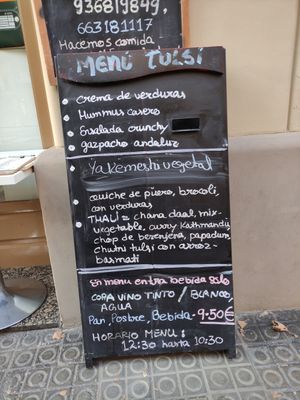 936819849,
663181117
Hacemos comida
MENÚ TULSI
crema de verduras
Hummus casero
Ensalada crunchy
gazpacho andaluz
Yakemeshi vegetal
quiche de puero, brocoli
con verduras
THALI = chana daal, mix-
vegetable, curry Kathmandu,
chop de berenjena, papadum,
chutni tulsi con arroz-
basmati
En menu entra bebida solo
COPA VINO TINTO / BLANCO,
AGUA
Pan, Postre, Bebida - 9.50€
HORARIO MENU:
12:30 hasta 10:30